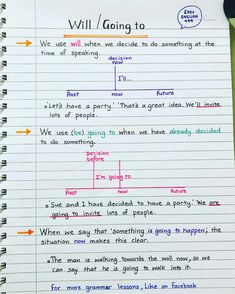 Will / Going to
EASY
ENGLISH
→ We use will when we decide to do something at the
time of speaking.
decision
now
I'll...
Past now future
• 'Let's have a party.' 'That's a great idea. We'll invite
lots of people.'
→ We use (be) going to when we have already decided
to do something.
decision
before
I'm going to
Past now future
• 'Sue and I have decided to have a party.' We are
going to invite lots of people.
→ When we say that 'something is going to happen', the
situation now makes this clear.
• The man is walking towards the wall now, so we
can say that he is going to walk into it.
For more grammar lessons, Like on Facebook